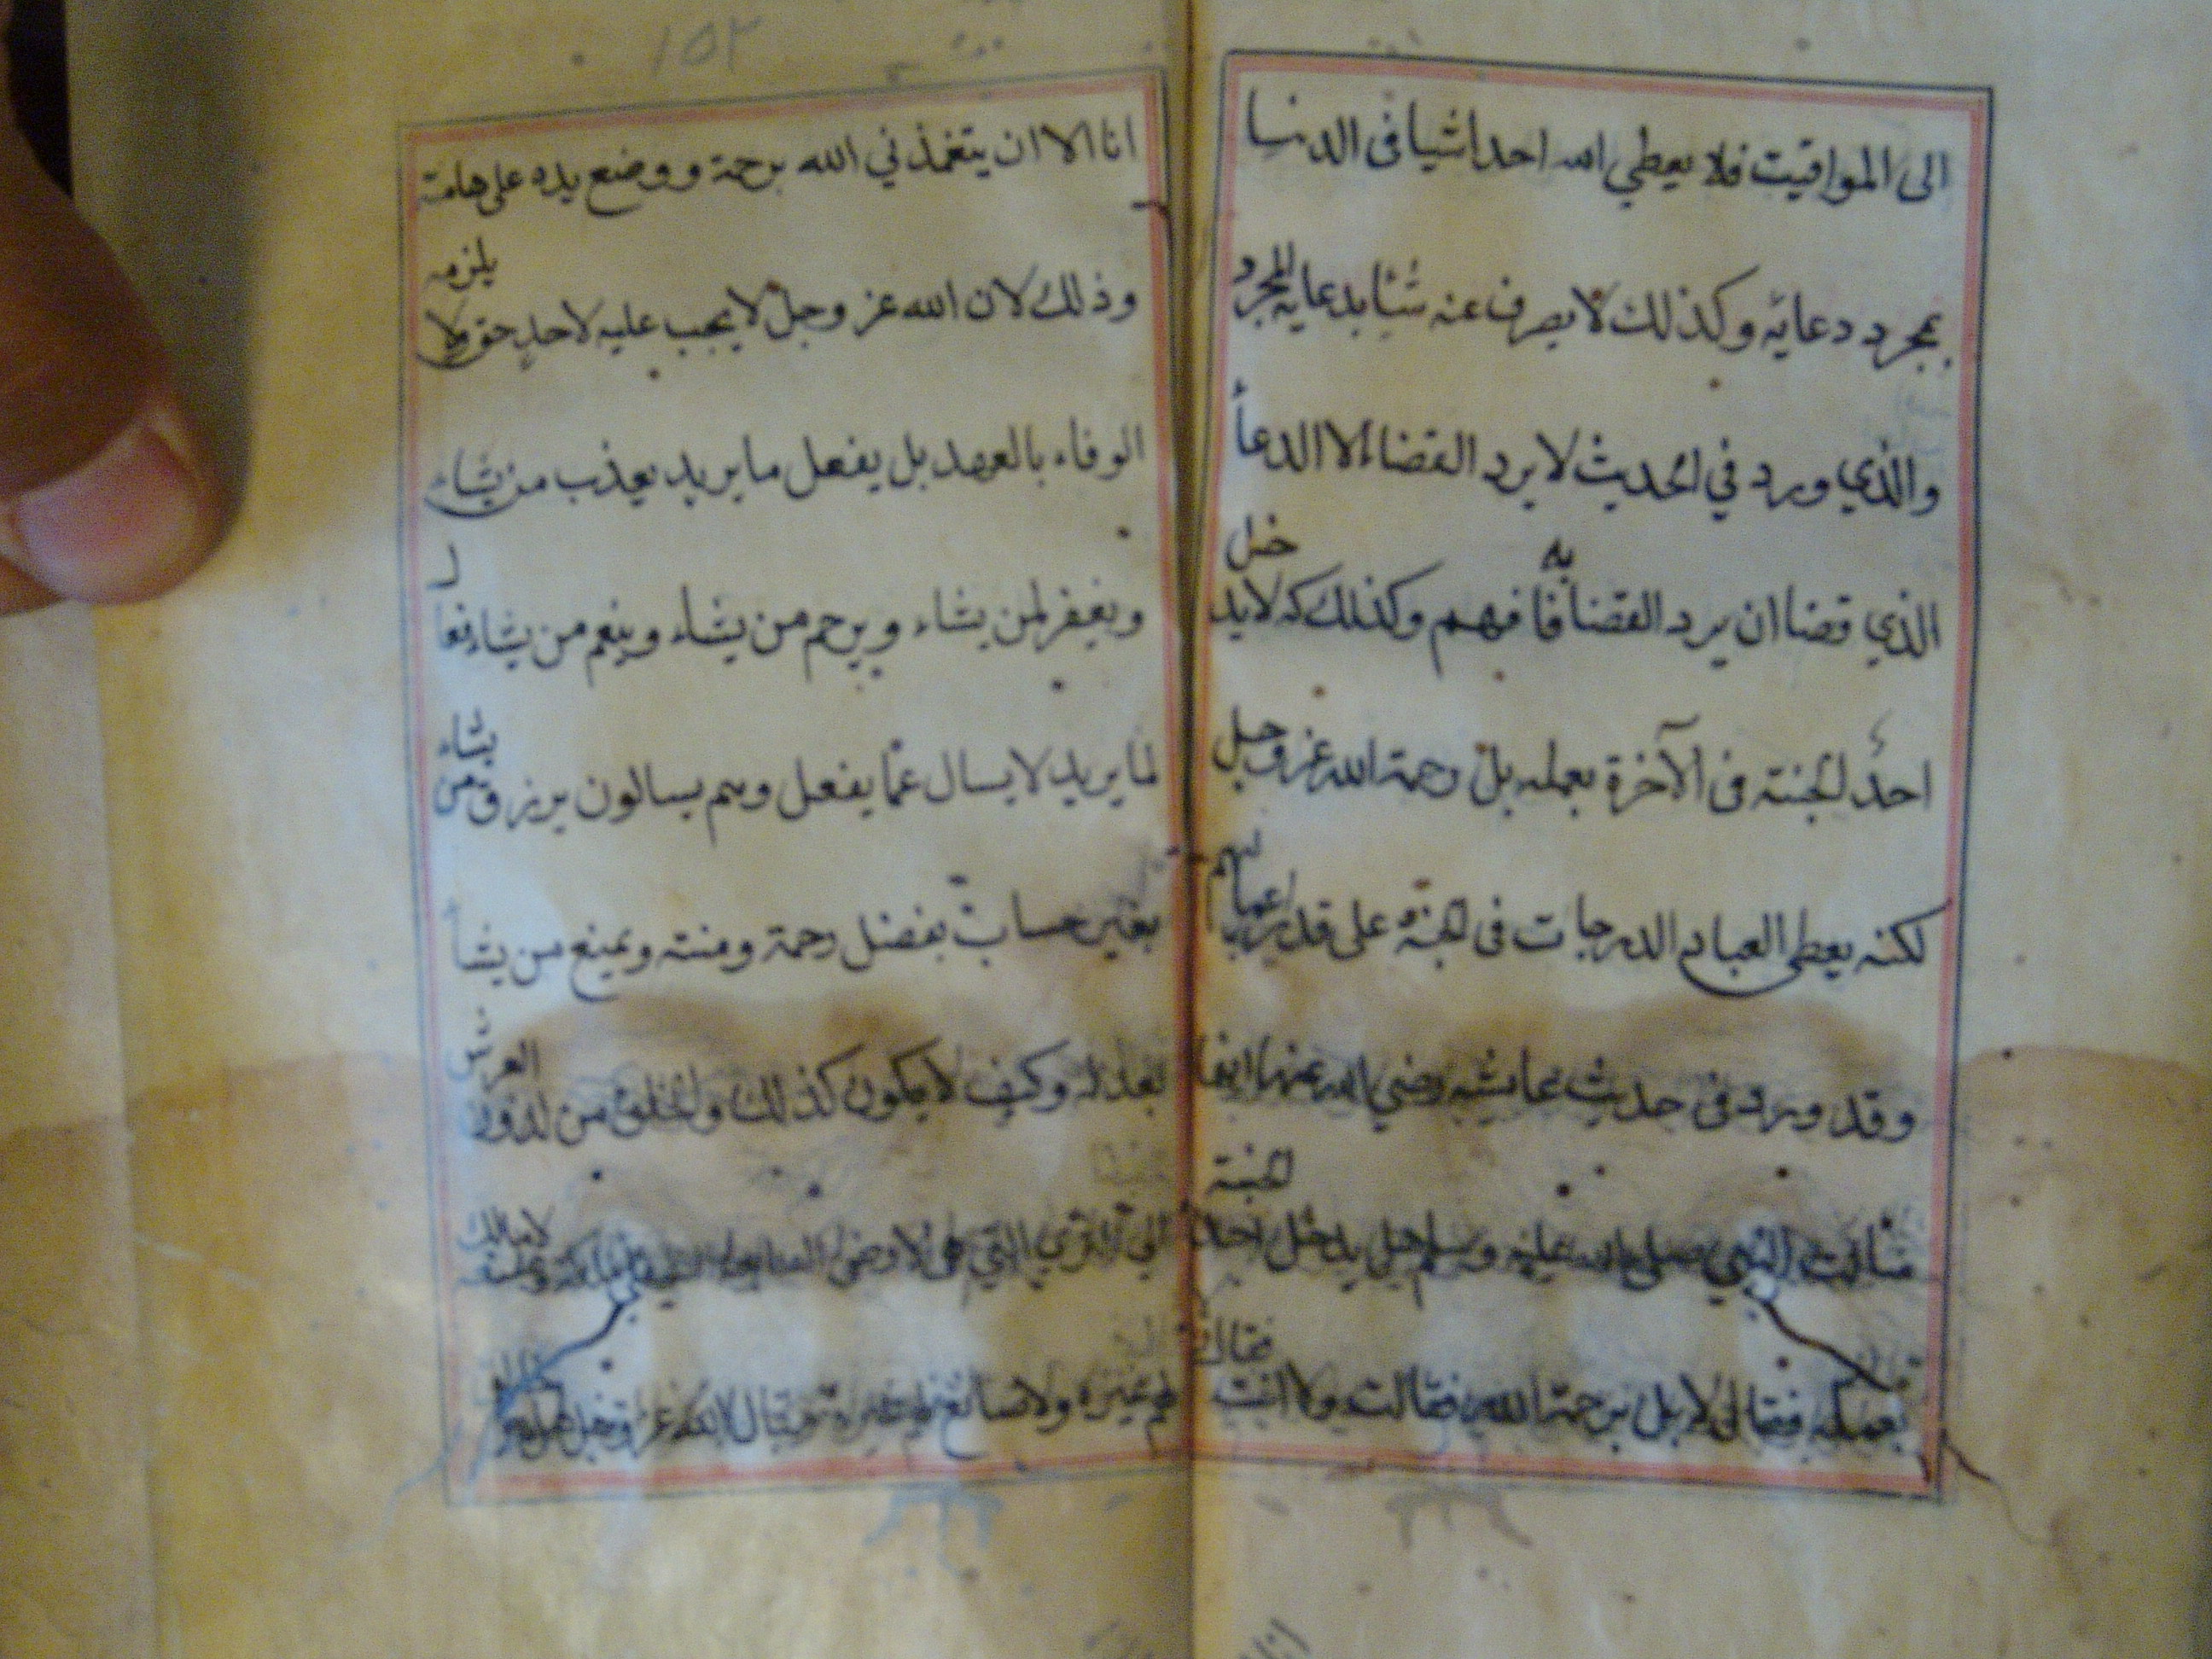 الى المواقيت فلا يعطي الله احدا شيا فى الدنيا
بمجرد دعايه وكذلك لا يصرف عنه شيئا بدعايه المجرد
والذي ورد في الحديث لا يرد القضاء الا الدعأ
الذي قضا ان يرد القضا به فافهم وكذلك لا يدخل
احد الجنته فى الآخرة بعمله بل برحمة الله عز وجل
لكنه يعطى العباد الدرجات فى الجنة على قدر اعمالهم
وقد ورد فى حديث عايشه رضي الله عنها انها
سالت النبي صلى الله عليه وسلم هل يدخل احد الجنته
بعمله فقال لا بل برحمة الله فقالت ولا انت فقال
١٥٢
انا الا ان يتغمذني الله برحمة ووضع يده على هامته
وذلك لان الله عز وجل لا يجب عليه لاحد حق ولا يلزمه
الوفاء بالعهد بل يفعل ما يريد يعذب من يشاء
ويغفر لمن يشاء ويرحم من يشاء وينعم من يشاء فعال
لما يريد لا يسال عما يفعل وهم يسالون يرزق من يشاء
بغير حساب بفضل رحمة ومنته ويمنع من يشأ
بعدله وكيف لا يكون كذلك والخلق من لدن العرش
الى الثري التي هى الارض
غيره ولا صانع لهم غيره قال الله عز وجل هل من